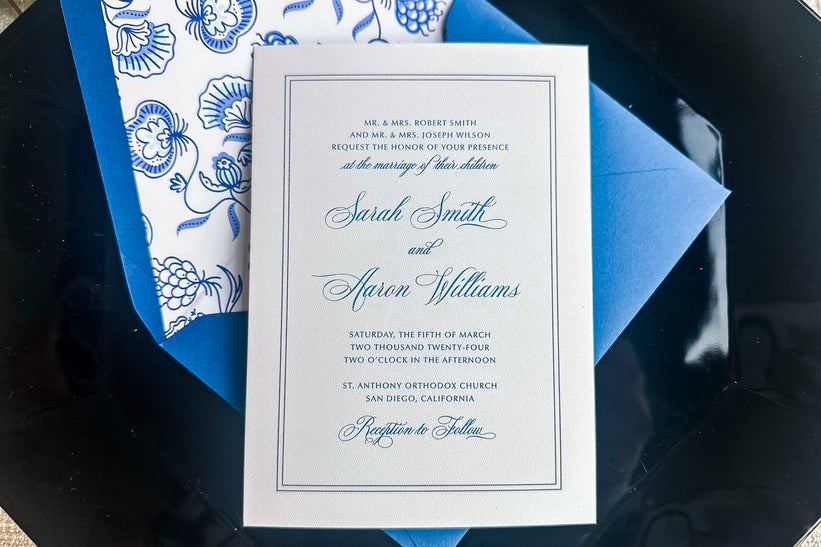 MR. & MRS. ROBERT SMITH
AND MR. & MRS. JOSEPH WILSON
REQUEST THE HONOR OF YOUR PRESENCE
at the marriage of their children
Sarah Smith
and
Aaron Williams
SATURDAY, THE FIFTH OF MARCH
TWO THOUSAND TWENTY-FOUR
TWO O'CLOCK IN THE AFTERNOON
ST. ANTHONY ORTHODOX CHURCH
SAN DIEGO, CALIFORNIA
Reception to Follow